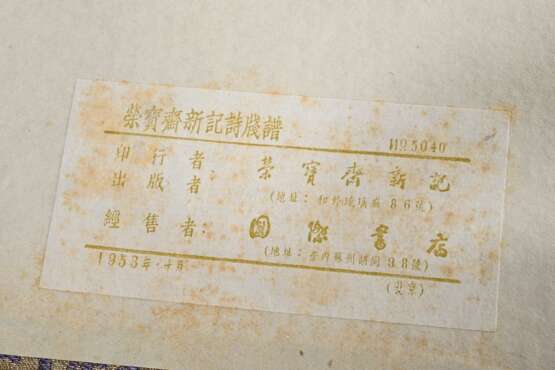 榮寶齋新記詩牋譜
HQ5040
印行者
出版者: 榮寶齋新記
(地址: 和外琉璃廠 86號)
經售者: 國際書店
(地址: 蘇州胡同 38號)
1953年
(北京)